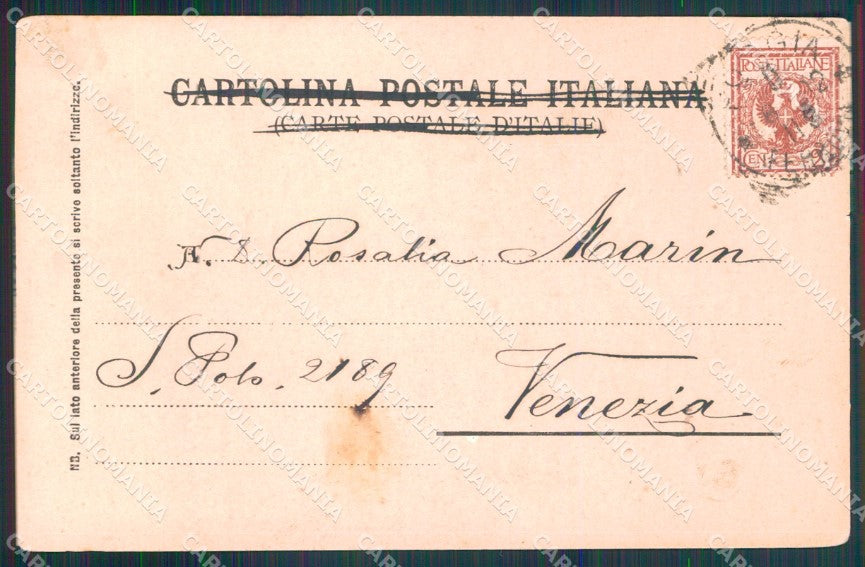 CARTOLINA POSTALE ITALIANA
(CARTE POSTALE D'ITALIE)
POSTE ITALIANE
CENT. 2
A. D. Rosalia Marin
S. Polo. 2189
Venezia
NB. Sul lato anteriore della presente si scrive soltanto l'indirizzo.
CARTOLINOMANIA